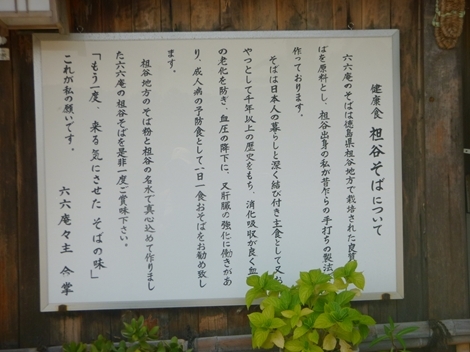 健康食 祖谷そばについて
六六庵のそばは徳島県祖谷地方で栽培された良質
ばを原料とし、祖谷出身の私が昔乍らの手打ちの製法
作っております。
そばは日本人の暮らしと深く結び付き主食として又お
やつとして千年以上の歴史をもち、消化吸収が良く血
の老化を防ぎ、血圧の降下に、又肝臓の強化に働きがあ
り、成人病の予防食として、一日一食おそばをお勧め致し
ます。
祖谷地方のそば粉と祖谷の名水で真心込めて作りまし
た六六庵の祖谷そばを是非一度ご賞味下さい。
「もう一度、来る気にさせた そばの味」
これが私の願いです。
六六庵々主